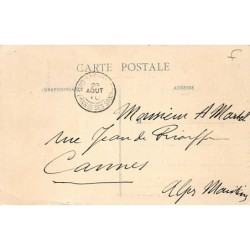 CARTE POSTALE
CORRESPONDANCE ADRESSE
23
AOUT
Monsieur A Martel
rue Jean de Riouffe
Cannes
Alpes Maritim